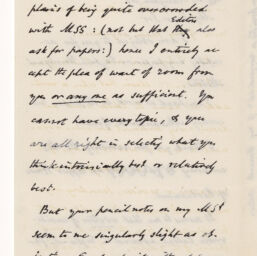 plains of being quite overcrowded
Editors
with MSS: (not but that they also
ask for papers:) hence I entirely ac-
cept the plea of want of room from
you or any one as sufficient. You
cannot have every topic, & you
are all right in selecting what you
think intrinsically best or relatively
best.
But your pencil notes on my MS
seem to me singularly slight as ob-